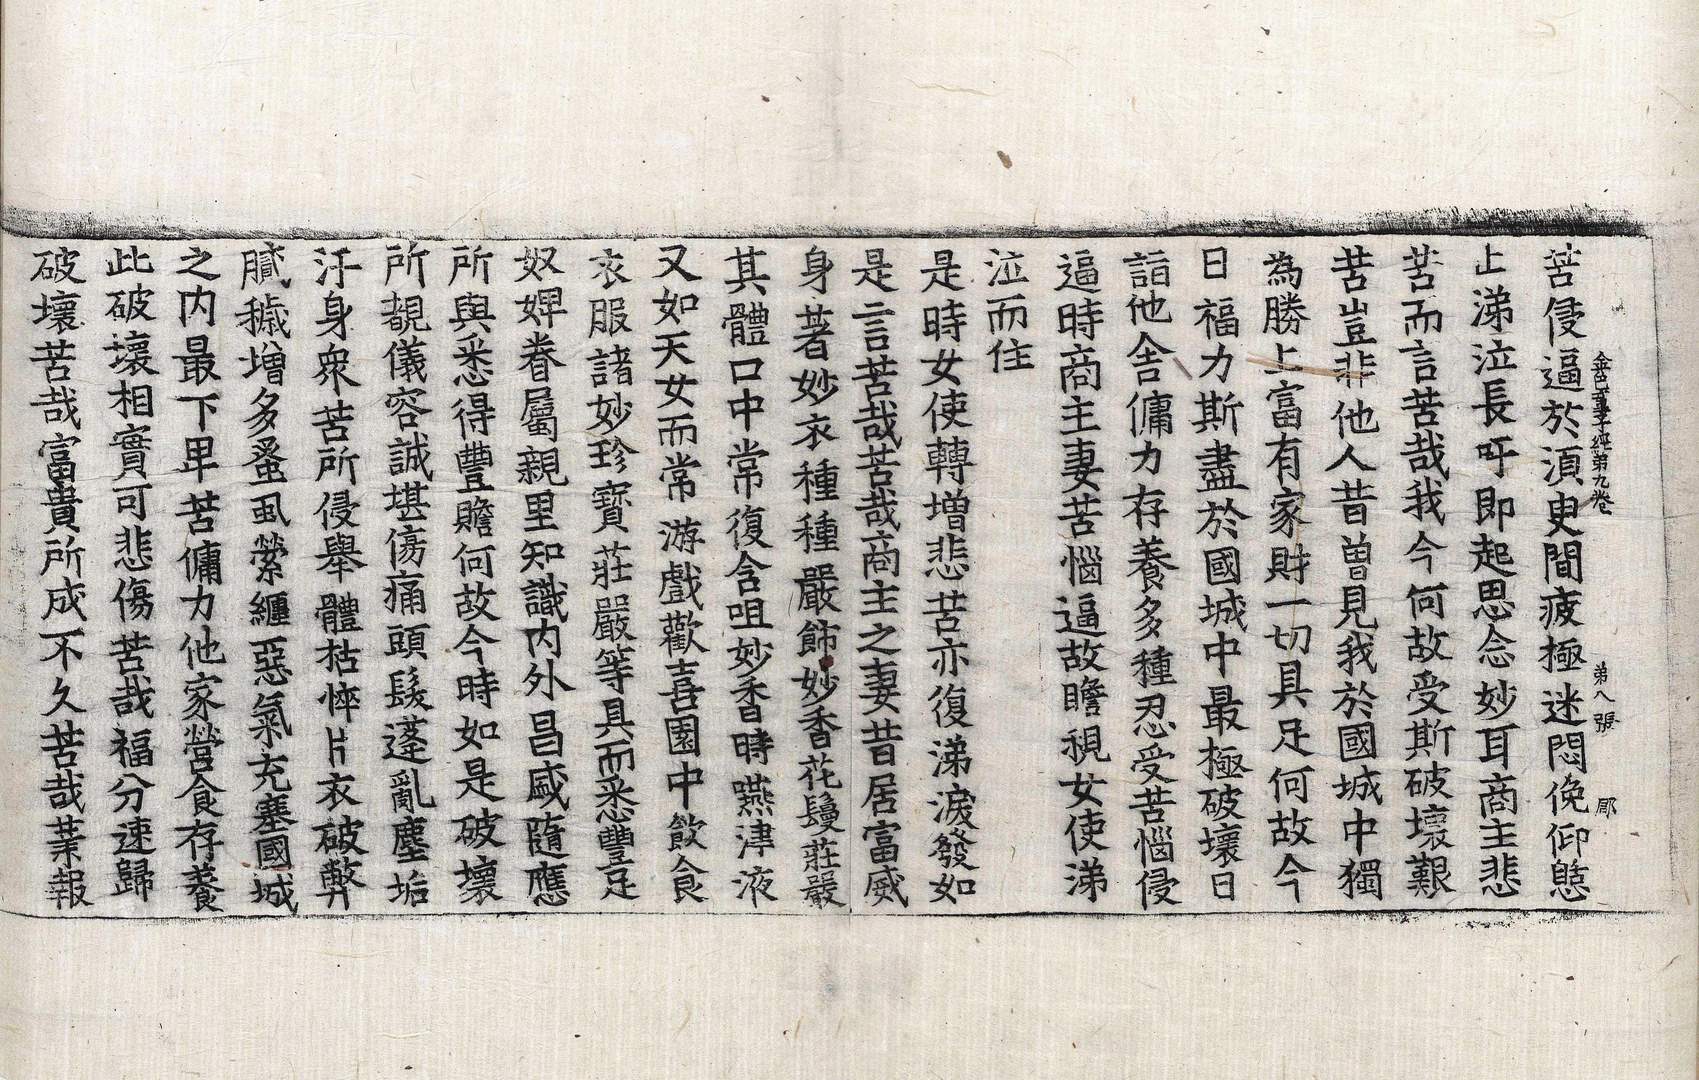 苦侵逼於湏臾間疲極迷悶俛仰慙
金色童子經第九卷 第八張 郿
止涕泣長吁即起思念妙耳商主悲
苦而言苦哉我今何故受斯破壞艱
苦豈非他人昔曽見我於國城中獨
為勝上富有家財一切具足何故今
日福力斯盡於國城中最極破壞日
詣他舍傭力存養多種忍受苦惱侵
逼時商主妻苦惱逼故瞻視女使涕
泣而住
是時女使轉增悲苦亦復涕淚發如
是言苦哉苦哉商主之妻昔居富威
身著妙衣種種嚴飾妙香花鬘莊嚴
其體口中常復含咀妙香時嚥津液
又如天女而常游戲歡喜園中飲食
衣服諸妙珍寳莊嚴等具而悉豐足
奴婢眷屬親里知識内外昌盛隨應
所與悉得豐贍何故今時如是破壞
所覩儀容誠堪傷痛頭髮蓬亂塵垢
汙身衆苦所侵舉體枯悴片衣破弊
膩穢增多蚤虱縈纏惡氣充塞國城
之内最下卑苦傭力他家營食存養
此破壞相實可悲傷苦哉福分速歸
破壞苦哉富貴所成不久苦哉業報